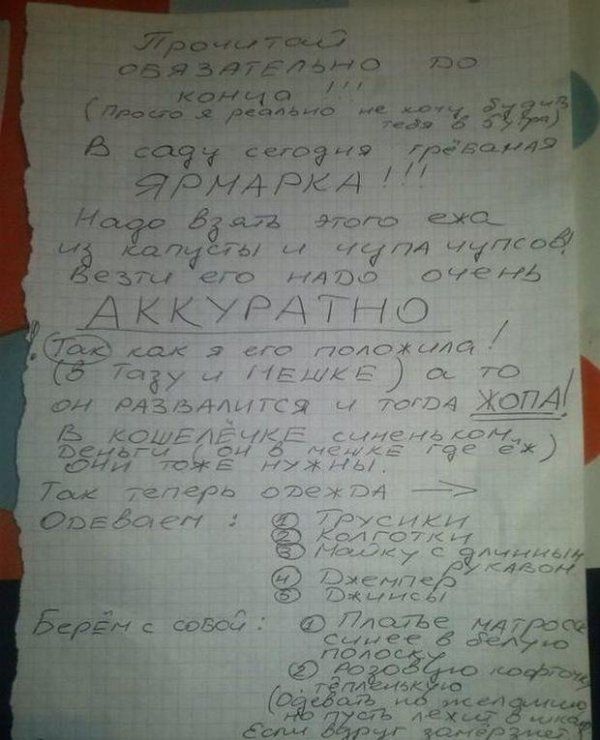 Прочитай
ОБЯЗАТЕЛЬНО ДО
КОНЦА !!!
(Просто я реально не хочу будить
тебя в 6 утра)
В саду сегодня грёбаная
ЯРМАРКА!!!
Надо взять этого ежа
из капусты и чупа чупсов!
Везти его НАДО очень
АККУРАТНО
! Так как я его положила!
(В тазу и МЕШКЕ) а то
ОН РАЗВАЛИТСЯ и тогда ЖОПА!
В КОШЕЛЁЧКЕ синеньком
деньги (он в мешке где ёж)
ОНИ ТОЖЕ НУЖНЫ.
Так теперь одежда →
ОДЕВАЕМ: ① Трусики
② Колготки
③ Майку с длинным
рукавом
④ Джемпер
⑤ Джинсы
Берём с собой: ① Платье матроса
синее в белую
полоску
② розовую кофточку
тёпленькую
(Одевать по желанию
но пусть лежит в шкафу
Если вдруг замёрзнет